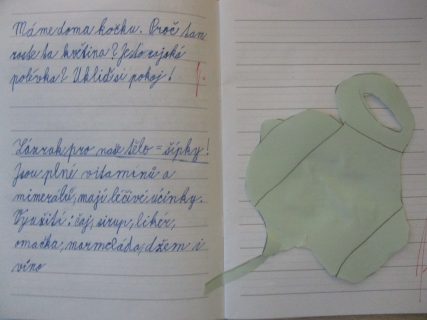 Máme doma kočku. Proč tam
roste ta květina? Je to rajská
polévka? Ukliď si pokoj!
Zázrak pro naše tělo = šípky!
Jsou plné vitamínů a
minerálů, mají léčivé účinky.
Využití: čaj, sirup, likér,
omáčka, marmeláda, džem i
víno